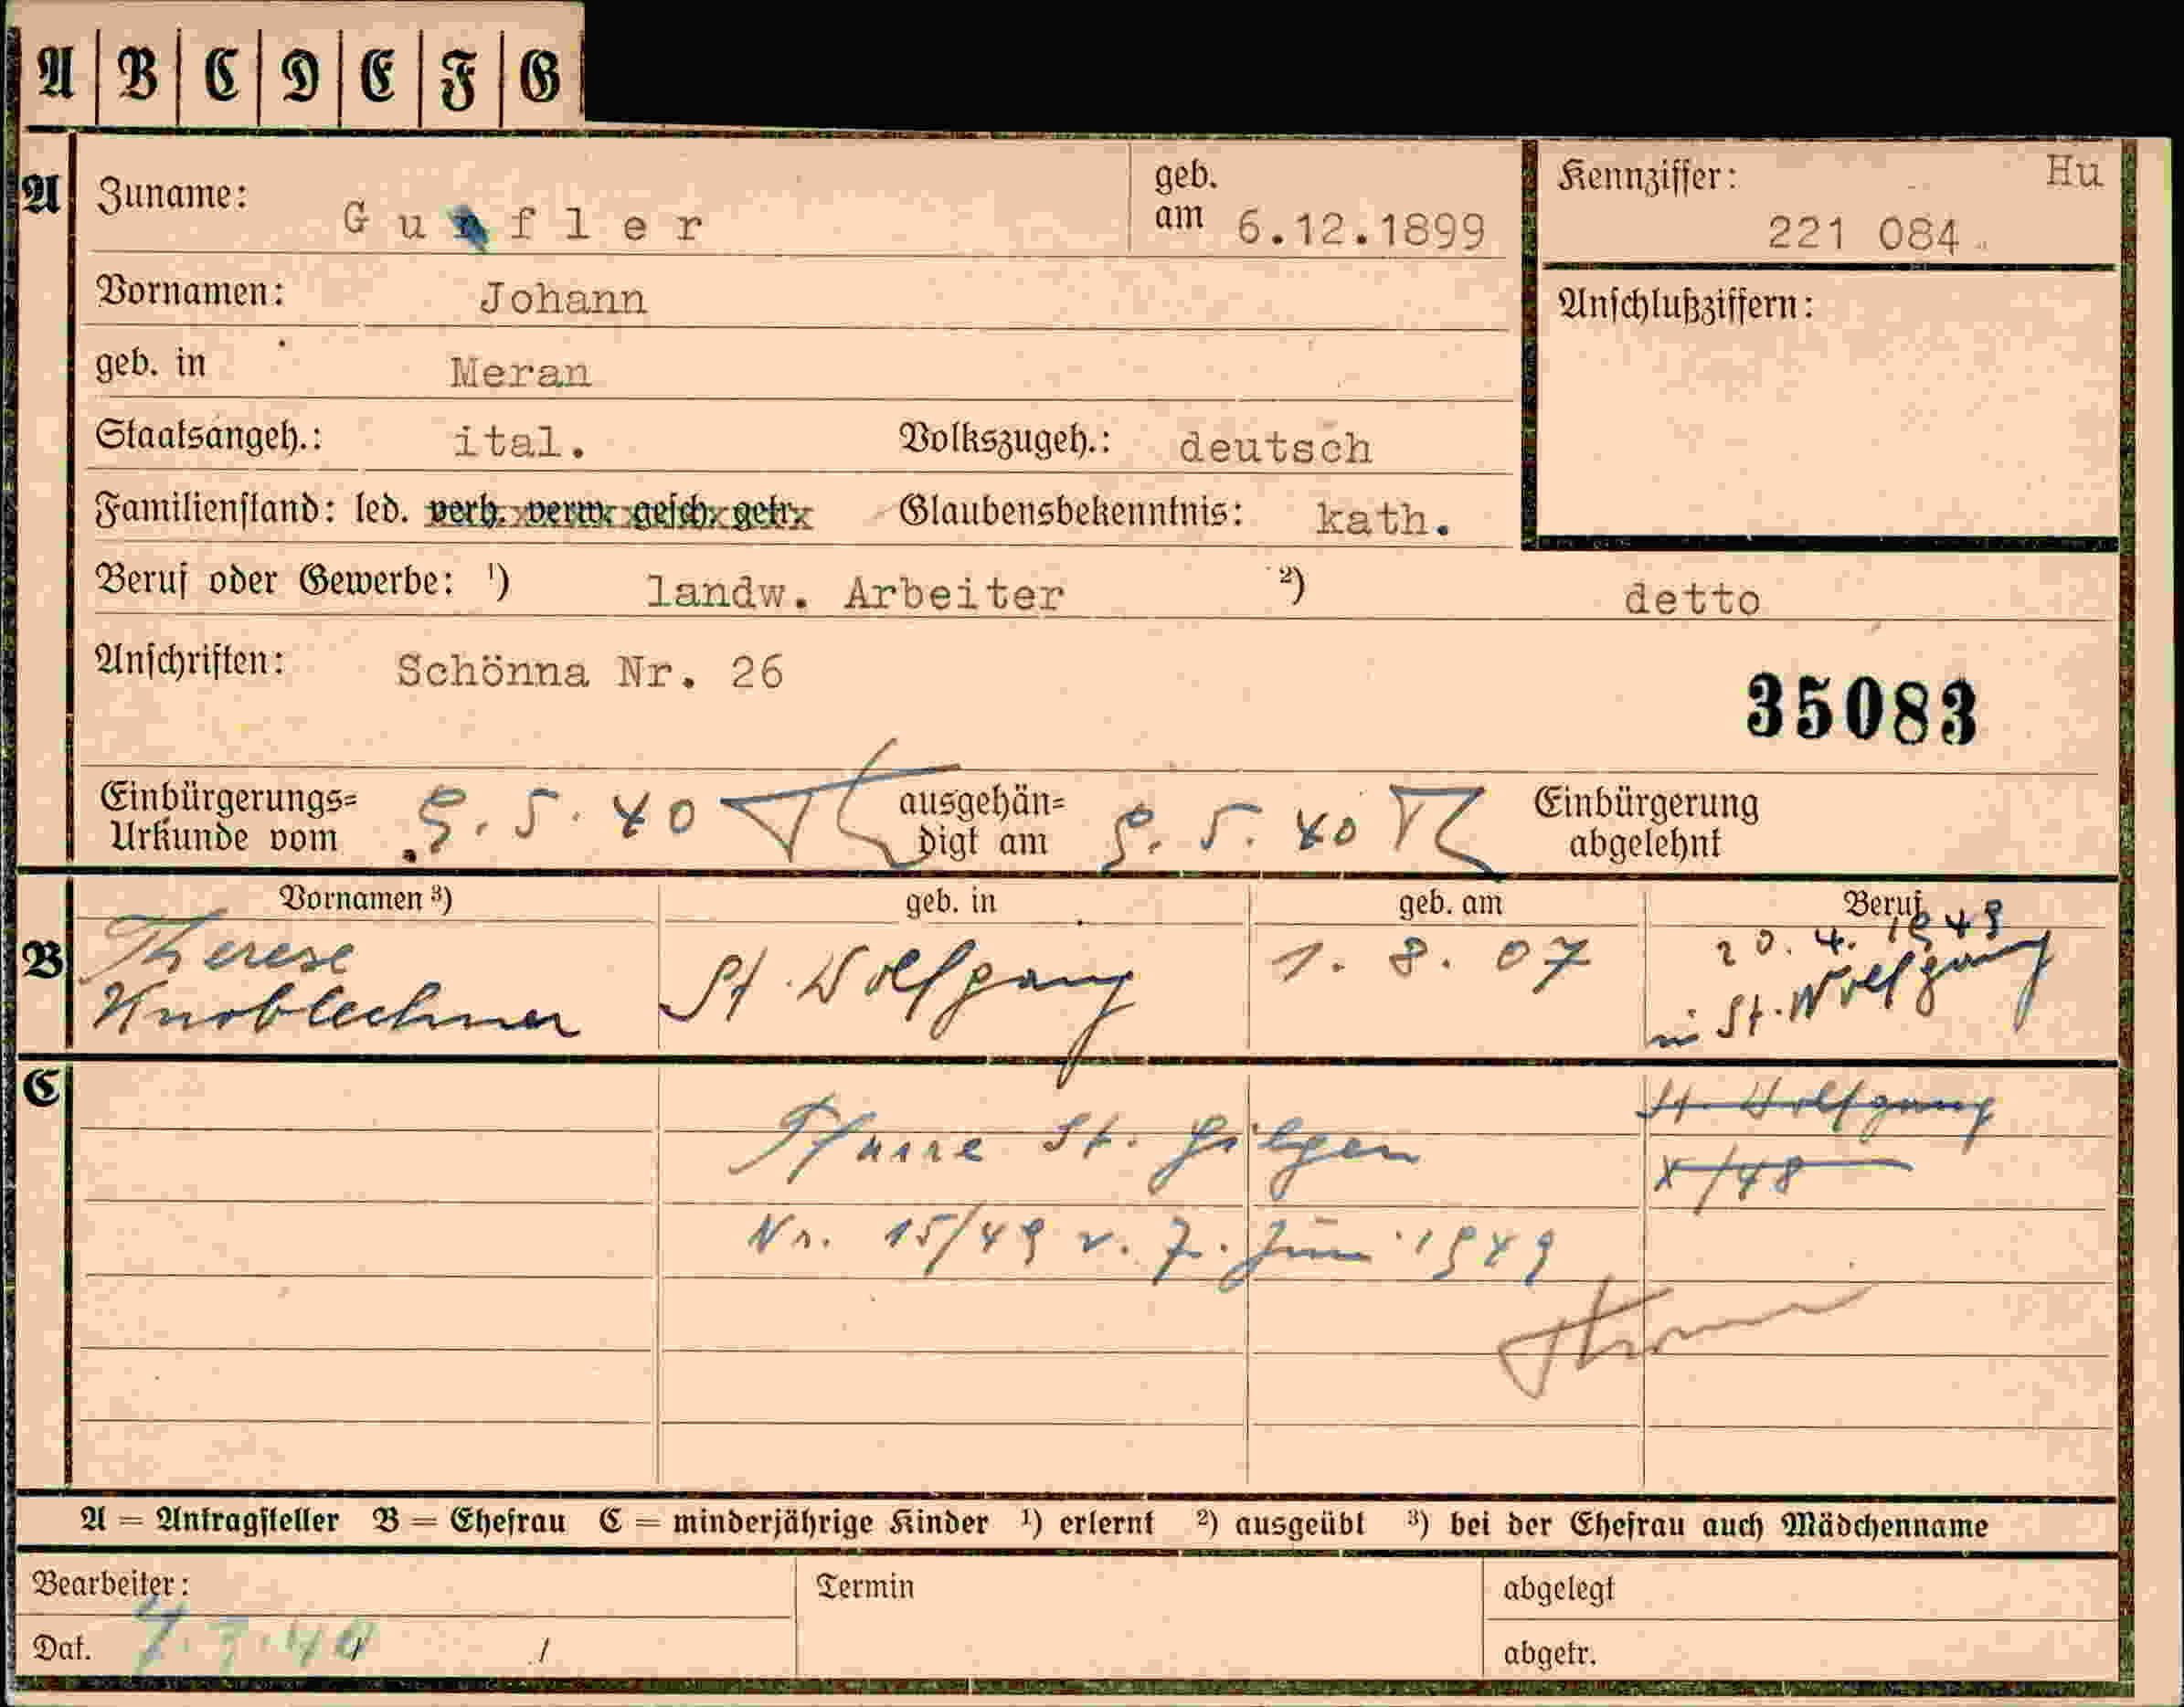 A B C D E F G
A Zuname: Gufler geb. am 6.12.1899 Kennziffer: Hu 221 084
Vornamen: Johann Anschlußziffern:
geb. in Meran
Staatsangeh.: ital. Volkszugeh.: deutsch
Familienstand: led. verh. verw. gesch. getr. Glaubensbekenntnis: kath.
Beruf oder Gewerbe: 1) landw. Arbeiter 2) detto
Anschriften: Schönna Nr. 26
35083
Einbürgerungs= ausgehän= Einbürgerung
Urkunde vom 9.5.40 digt am 9.5.40 abgelehnt
Vornamen 3) geb. in geb. am Beruf
B Therese St. Wolfgang 1.8.07 20.4.1949
Knoblechner in St. Wolfgang
C
Pfarre St. Gilgen St. Wolfgang
X/48
Nr. 15/49 v. 7. Juni 1949
A = Antragsteller B = Ehefrau C = minderjährige Kinder 1) erlernt 2) ausgeübt 3) bei der Ehefrau auch Mädchenname
Bearbeiter: Termin abgelegt
Dat. abgetr.